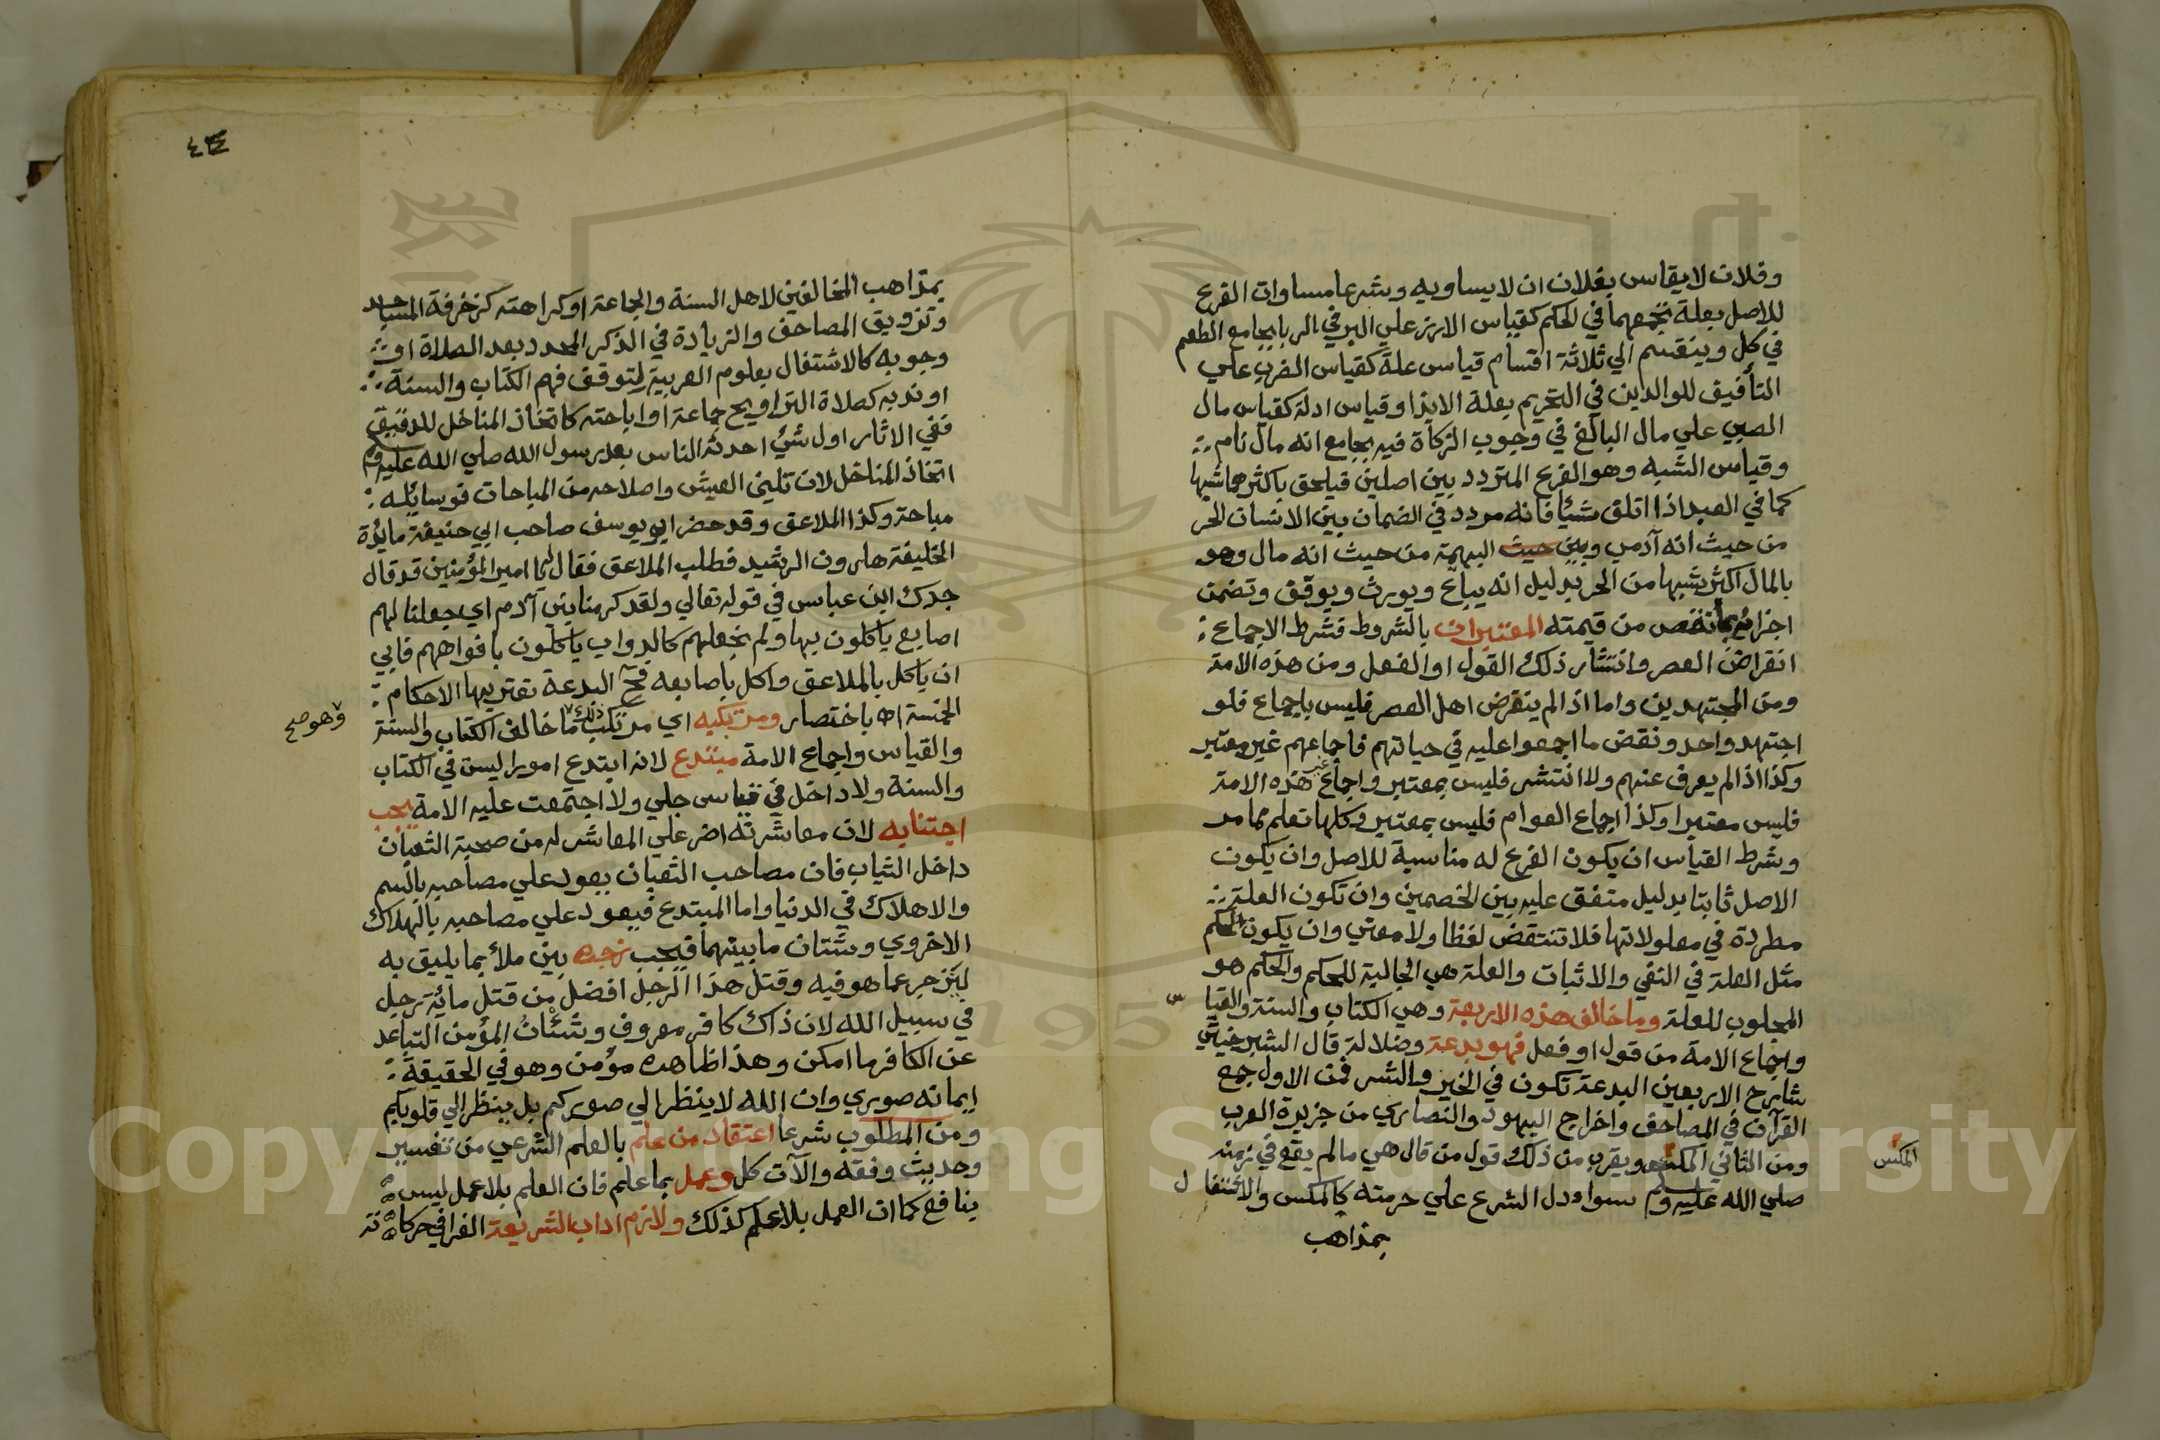 وفلان لا يقاس بفلان ان لا يساويه وشرعا مساوات الفرع
للاصل بعلة تجمعهما في الحكم كقياس الارز علي البر في الربا بجامع الطعم
في كل وينقسم الي ثلاثة اقسام قياس علة كقياس الضرب علي
التأفيف للوالدين في التحريم بعلة الايذا وقياس ادلة كقياس مال
الصبي علي مال البالغ في وجوب الزكاة فيه بجامع انه مال نام
وقياس الشبه وهو الفرع المتردد بين اصلين فيلحق باكثرهما شبها
كما في العبد اذا اتلف شيًا فانه مردد في الضمان بين الانسان الحر
من حيث انه آدمي وبين حيث البهيمة من حيث انه مال وهو
بالمال اكثر شبها من الحر بدليل انه يباع ويورث ويوقف وتضمن
اجزائه بما نقص من قيمته المعتبران بالشروط فشرط الاجماع
انقراض العصر وانتشار ذلك القول او الفعل ومن هذه الامة
ومن المجتهدين واما اذا لم ينقرض اهل العصر فليس باجماع فلو
اجتهد واحد ونقض ما اجمعوا عليه في حياتهم فاجماعهم غير معتبر
وكذا اذا لم يعرف عنهم ولا انتشر فليس بمعتبر واجماع غير هذه الامة
فليس معتبرا وكذا اجماع العوام فليس بمعتبر وكلها تعلم مما مر
وشرط القياس ان يكون الفرع له مناسبة للاصل وان يكون
الاصل ثابتا بدليل متفق عليه بين الخصمين وان تكون العلة
مطردة في معلولاتها فلا تنتقض لفظا ولا معني وان يكون الحكم
مثل العلة في النفي والاثبات والعلة هي الجالبة للحكم والحكم هو
المجلوب للعلة وما خالف هذه الاربعة وهي الكتاب والسنة والقياس
واجماع الامة من قول او فعل فهو بدعة وضلالة قال الشبرخيتي
شارح الاربعين البدعة تكون في الخير والشر فمن الاول جمع
القرآن في المصاحف واخراج اليهود والنصاري من جزيرة العرب
ومن الثاني المكس ويقرب من ذلك قول من قال هي ما لم يقع في زمنه
المكس
صلي الله عليه وسلم سواء دل الشرع علي حرمته كالمكس والاشتغال
بمذاهب
٤٣
بمذاهب المخالفين لاهل السنة والجاعة او كراهته كزخرفة المساجد
وتزويق المصاحف والزيادة في الذكر المحدد بعد الصلاة او
وجوبه كالاشتغال بعلوم العربية لتوقف فهم الكتاب والسنة
او ندبه كصلاة التراويح جماعة او اباحته كاتخاذ المناخل للدقيق
ففي الاثار اول شئ احدثه الناس بعد رسول الله صلي الله عليه وسلم
اتخاذ المناخل لان تليين العيش واصلاحه من المباحات فوسايله
مباحة وكذا الملاعق وقد حضر ابو يوسف صاحب ابي حنيفة مايدة
الخليفة هارون الرشيد فطلب الملاعق فقال له يا امير المؤمنين قد قال
جدك ابن عباس في قوله تعالي ولقد كرمنا بني آدم اي جعلنا لهم
اصابع ياكلون بها ولم نجعلهم كالدواب ياكلون بافواههم فابي
ان ياكل بالملاعق واكل باصابعه فح البدعة تعتريها الاحكام
الخمسة اه باختصار ومرتكبه اي مرتكب ذلك ما خالف الكتاب والسنة
وهو صح
والقياس واجماع الامة مبتدع لانه ابتدع امورا ليست في الكتاب
والسنة ولا داخل في قياس جلي ولا اجتمعت عليه الامة يجب
اجتنابه لان معاشرته اضر علي المعاشر له من صحبة الثعبان
داخل الثياب فان مصاحب الثعبان يعود علي مصاحبه بالسم
والاهلاك في الدنيا واما المبتدع فيعود علي مصاحبه بالهلاك
الاخروي وشتان ما بينهما فيجب زجره بين ملأ بما يليق به
لينزجر عما هو فيه وقتل هذا الرجل افضل من قتل مائة رجل
في سبيل الله لان ذاك كافر معروف وشئان المؤمن التباعد
عن الكافر ما امكن وهذا ظاهره مؤمن وهو في الحقيقة
ايمانه صوري وان الله لا ينظر الي صوركم بل ينظر الي قلوبكم
ومن المطلوب شرعا اعتقاد من علم بالعلم الشرعي من تفسير
وحديث وفقه والآت كل وعمل بما علم فان العلم بلا عمل ليس
ينافع كما ان العمل بلا علم كذلك ولازم اداب الشريعة الغرا في حركاته